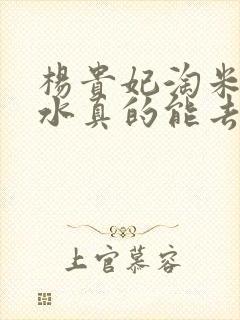 楊貴妃淘米
水真的能去
上官慕容